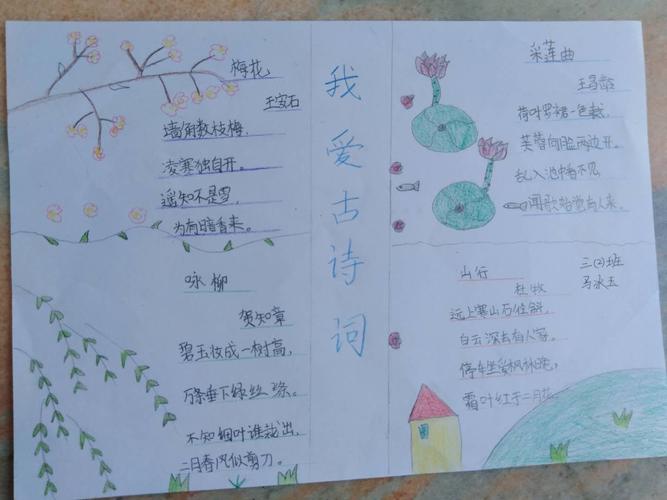 梅花
王安石
墙角数枝梅，
凌寒独自开。
遥知不是雪，
为有暗香来。
咏柳
贺知章
碧玉妆成一树高，
万条垂下绿丝绦。
不知细叶谁裁出，
二月春风似剪刀。
我爱古诗词
采莲曲
王昌龄
荷叶罗裙一色裁，
芙蓉向脸两边开。
乱入池中看不见，
闻歌始觉有人来。
三(2)班
山行
杜牧
远上寒山石径斜，
白云深处有人家。
停车坐爱枫林晚，
霜叶红于二月花。